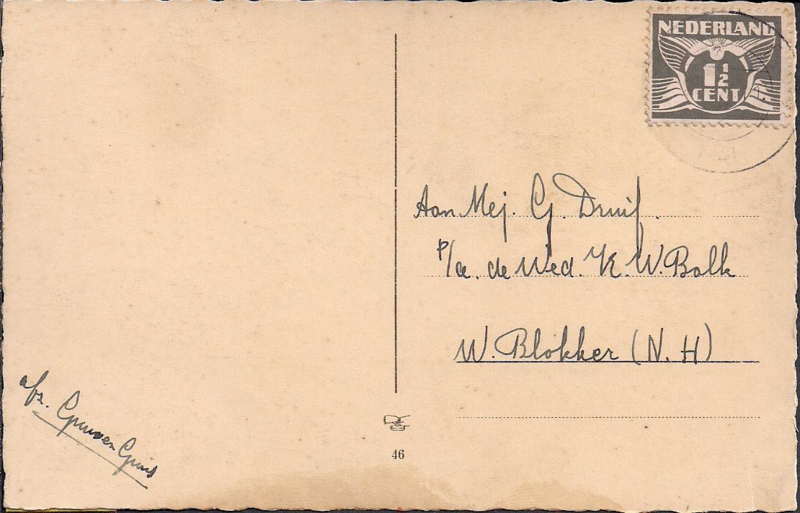 NEDERLAND
1½
CENT
Aan Mej. G. Druif.
p/a. de Wed. K. W. Balk
W. Blokker (N.H)
afz.
46